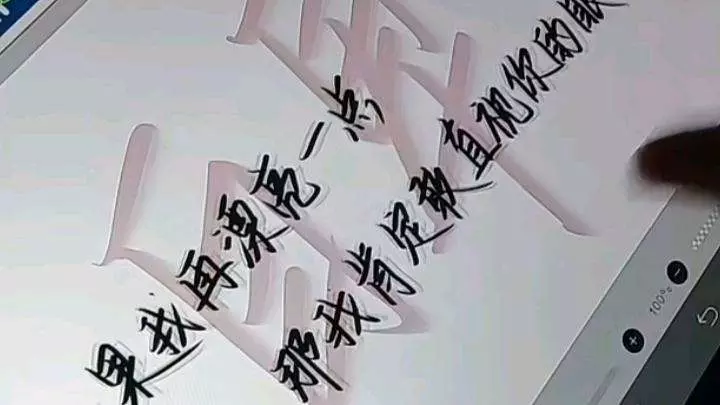 果我再漂亮一点
那我肯定敢直视你的眼
100%